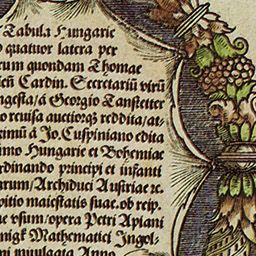 Tabula Hungarie
o quatuor latera per
rum quondam Thomae
ticũ Cardin. Secretariũ virũ
ngesta/á Georgio Tanstetter
o reuisa auctiorq3 reddita/at-
rimũ á Jo. Cuspiniano edita
imo Hungarie et Bohemiae
rdinando principi et infanti
rum/Archiduci Austriae zc.
pitio maiestatis suae. ob reip.
ue vsum/opera Petri Apiani
nigk Mathematici Ingol-
ni inuulgata Anno